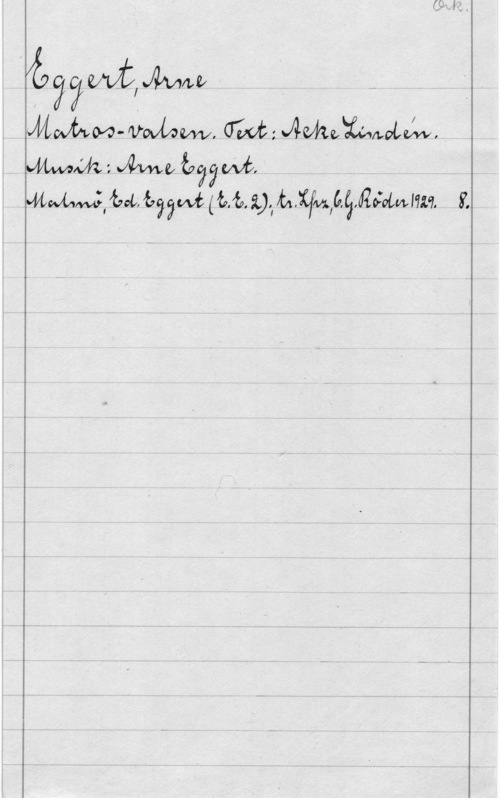 Ork.
Eggert, Arne
Matros-valsen. Text: Acke Lindén.
Musik: Arne Eggert.
Malmö, Ed. Eggert (E.E.2); tr. Lpz, C.G. Röder 1929. 8.